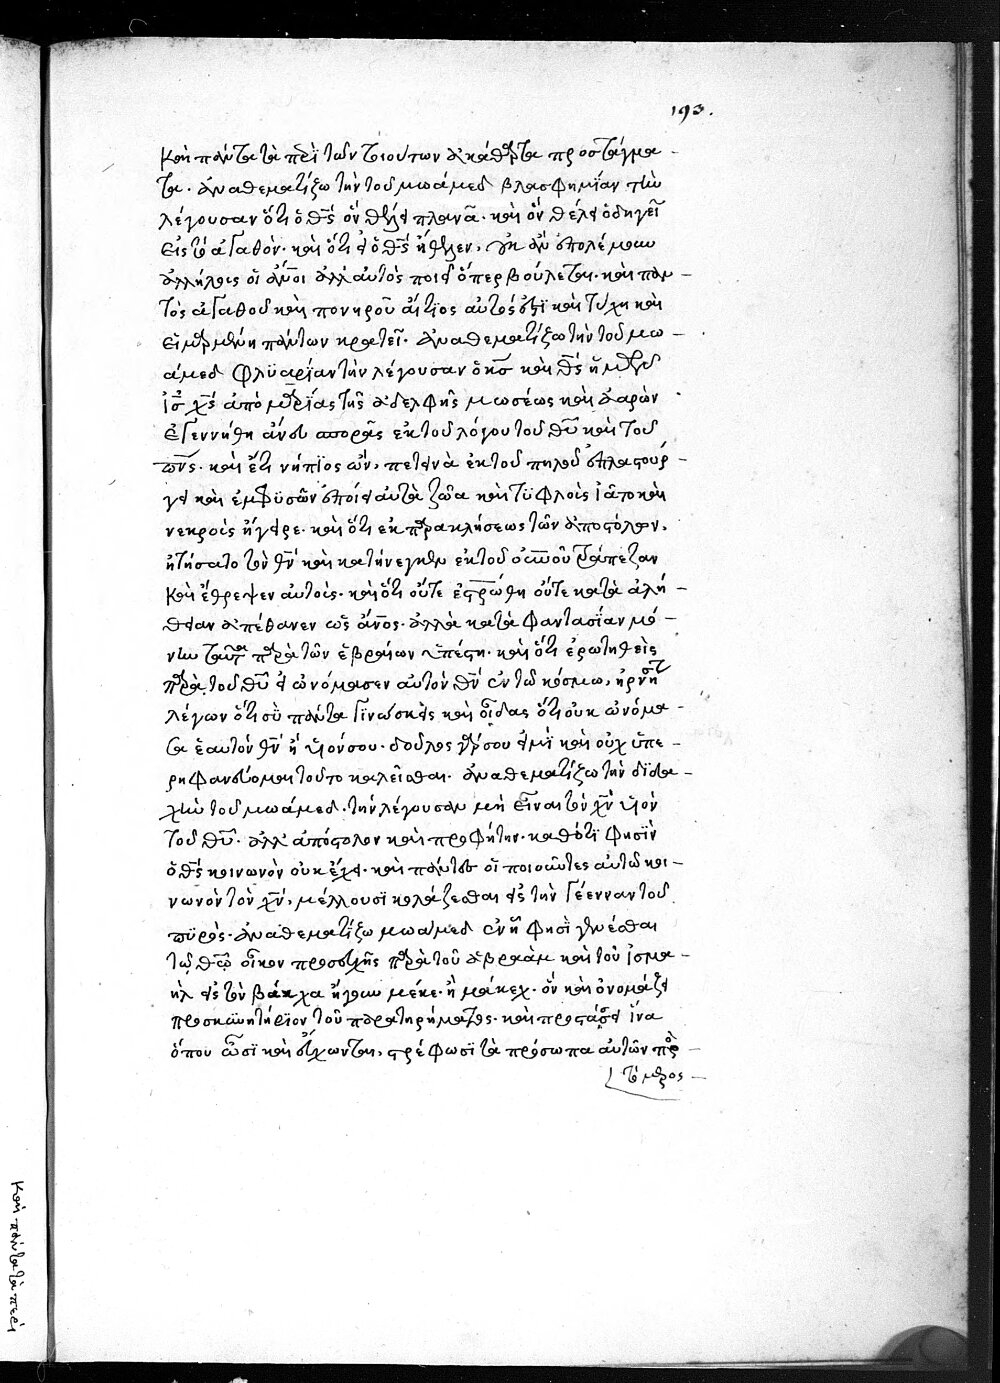 193.
καὶ πάντα τὰ περὶ τῶν τοιούτων ἀκάθαρτα προστάγμα-
τα. ἀναθεματίζω τὴν τοῦ μωάμεδ βλασφημίαν τὴν
λέγουσαν ὅτι ὁ θς ὃν θέλει πλανᾶ. καὶ ὃν θέλει ὁδηγεῖ
εἰς τὸ ἀγαθὸν. καὶ ὅτι εἰ ὁ θς ἤθελεν, οὐκ ἂν ἐπολέμουν
ἀλλήλοις οἱ ἄνοι ἀλλ' αὐτὸς ποιεῖ ὅπερ βούλεται. καὶ παν-
τὸς ἀγαθοῦ καὶ πονηροῦ αἴτιος αὐτός ἐστι καὶ τύχη καὶ
εἱμαρμένη πάντων κρατεῖ. ἀναθεματίζω τὴν τοῦ μω-
άμεδ φλυαρίαν τὴν λέγουσαν ὁ κς καὶ θς ἡμῶν
ἰς χς ἀπὸ μαρίας τῆς ἀδελφῆς μωσέως καὶ ἀαρὼν
ἐγεννήθη ἄνευ σπορᾶς ἐκ τοῦ λόγου τοῦ θυ καὶ τοῦ
πνς. καὶ ἔτι νήπιος ὢν, πετεινὰ ἐκ τοῦ πηλοῦ ἐπλαστούρ-
γει καὶ ἐμφυσῶν ἐποίει αὐτὰ ζῶα καὶ τυφλοὺς ἰᾶτο καὶ
νεκροὺς ἤγειρε. καὶ ὅτι ἐκ παρακλήσεως τῶν ἀποστόλων,
ἠτήσατο τὸν θν καὶ κατήνεγκεν ἐκ τοῦ οὐνοῦ τράπεζαν
καὶ ἔθρεψεν αὐτοὺς. καὶ ὅτι οὔτε ἐστρώθη οὔτε κατὰ ἀλή-
θειαν ἀπέθανεν ὡς ἄνος. ἀλλὰ κατὰ φαντασίαν μό-
νην ταῦτα παρὰ τῶν ἑβραίων ὑπέστη. καὶ ὅτι ἐρωτηθεὶς
παρὰ τοῦ θυ εἰ ὠνόμασεν αὐτὸν θν ἐν τῶ κόσμω, ἠρνήσατο
λέγων ὅτι σὺ πάντα γινώσκεις καὶ οἶδας ὅτι οὐκ ὠνόμα-
σα ἑαυτὸν θν ἢ υἱόν σου. δοῦλος γάρ σου εἰμὶ καὶ οὐχ ὑπε-
ρηφανεύομαι τοῦτο καλεῖσθαι. ἀναθεματίζω τὴν διδα-
χὴν τοῦ μωάμεδ. τὴν λέγουσαν μὴ εἶναι τὸν χν υἱὸν
τοῦ θυ. ἀλλ' ἀπόστολον καὶ προφήτην. καθότι φησὶν
ὁ θς κοινωνὸν οὐκ ἔχει. καὶ πάντες οἱ ποιοῦντες αὐτῶ κοι-
νωνὸν τὸν χν, μέλλουσι κολάζεσθαι εἰς τὴν γέενναν τοῦ
πυρὸς. ἀναθεματίζω μωάμεδ ἐν ἧ φησὶ γενέσθαι
τῶ θῶ οἶκον προσευχῆς παρὰ τοῦ ἀβραὰμ καὶ τοῦ ἰσμα-
ὴλ εἰς τὸν βάκχα ἤγουν μέκε. ἢ μάκεχ. ὃν καὶ ὀνομάζει
προσκυνητήριον τοῦ παρατηρήματος. καὶ προστάσσει ἵνα
ὅπου ὦσι καὶ εὔχωνται, στρέφωσι τὰ πρόσωπα αὐτῶν πρὸς
τὸ μέρος
καὶ πάντα τὰ περὶ